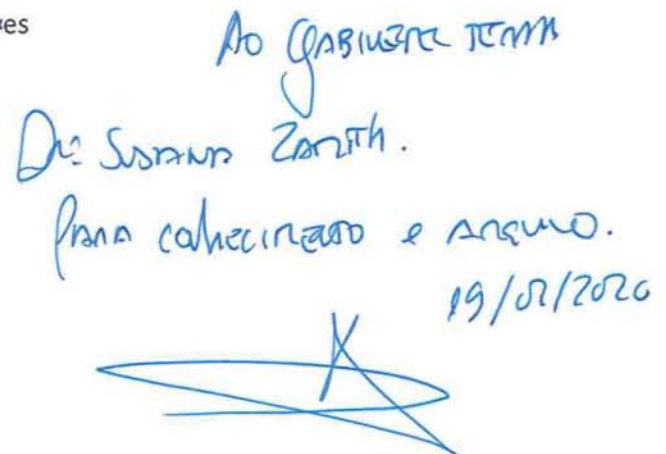 es
Ao GABINETE
Drª SUSANA
PARA conhecimento e ARQUIVO.
19/02/2020